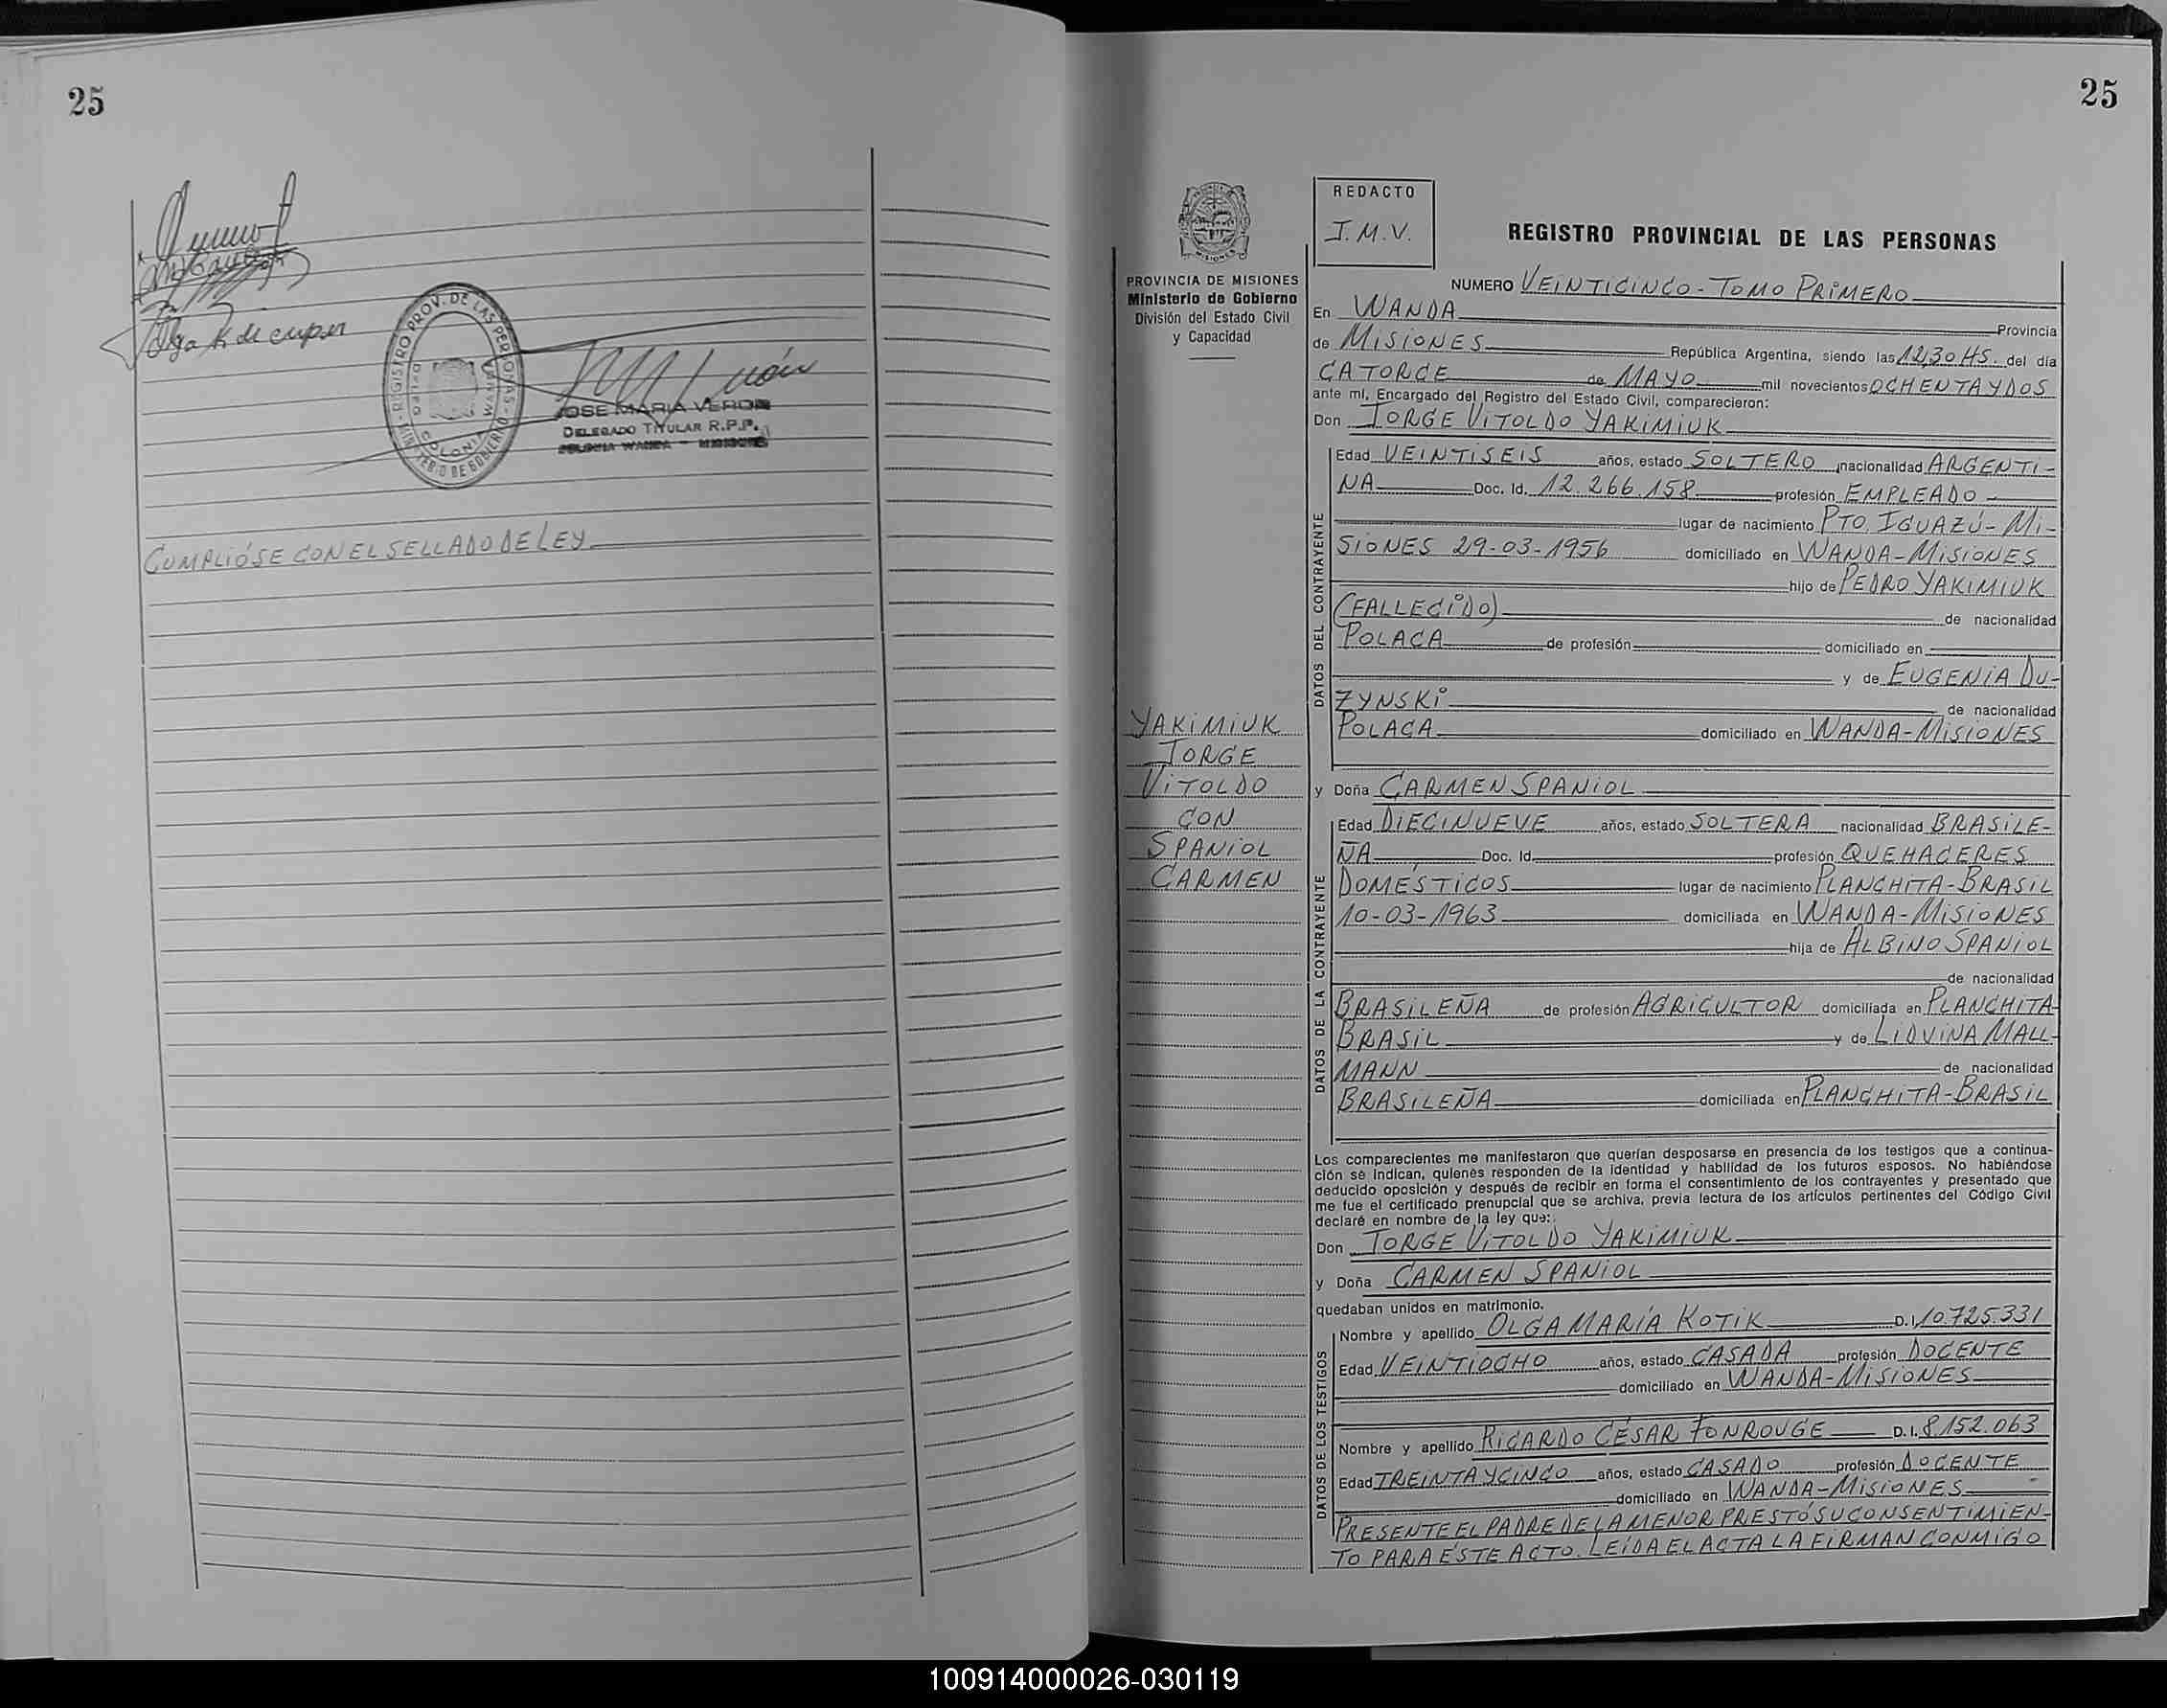 25
Olga K. de cuper
REGISTRO PROV. DE LAS PERSONAS - MINISTERIO DE GOBIERNO
COLONIA WANDA
JOSE MARIA VERON
DELEGADO TITULAR R.P.P.
COLONIA WANDA - MISIONES
CUMPLIÓSE CON EL SELLADO DE LEY
25
PROVINCIA DE MISIONES
Ministerio de Gobierno
División del Estado Civil
y Capacidad
YAKIMIUK
JORGE
VITOLDO
CON
SPANIOL
CARMEN
REDACTO
I.M.V.
REGISTRO PROVINCIAL DE LAS PERSONAS
NUMERO VEINTICINCO - TOMO PRIMERO
En WANDA Provincia
de MISIONES República Argentina, siendo las 12,30 HS. del día
CATORCE de MAYO mil novecientos OCHENTA Y DOS
ante mí, Encargado del Registro del Estado Civil, comparecieron:
Don JORGE VITOLDO YAKIMIUK
DATOS DEL CONTRAYENTE
Edad VEINTISEIS años, estado SOLTERO nacionalidad ARGENTI-
NA Doc. Id. 12.266.158 profesión EMPLEADO
lugar de nacimiento PTO. IGUAZÚ - MI-
SIONES 29-03-1956 domiciliado en WANDA - MISIONES
hijo de PEDRO YAKIMIUK
(FALLECIDO) de nacionalidad
POLACA de profesión domiciliado en
y de EUGENIA DU-
ZYNSKI de nacionalidad
POLACA domiciliado en WANDA - MISIONES
y Doña CARMEN SPANIOL
DATOS DE LA CONTRAYENTE
Edad DIECINUEVE años, estado SOLTERA nacionalidad BRASILE-
ÑA Doc. Id. profesión QUEHACERES
DOMÉSTICOS lugar de nacimiento PLANCHITA - BRASIL
10-03-1963 domiciliada en WANDA - MISIONES
hija de ALBINO SPANIOL
de nacionalidad
BRASILEÑA de profesión AGRICULTOR domiciliada en PLANCHITA-
BRASIL y de LIDVINA MALL-
MANN de nacionalidad
BRASILEÑA domiciliada en PLANCHITA - BRASIL
Los comparecientes me manifestaron que querían desposarse en presencia de los testigos que a continua-
ción se indican, quienes responden de la identidad y habilidad de los futuros esposos. No habiéndose
deducido oposición y después de recibir en forma el consentimiento de los contrayentes y presentado que
me fue el certificado prenupcial que se archiva, previa lectura de los artículos pertinentes del Código Civil
declaré en nombre de la ley que:
Don JORGE VITOLDO YAKIMIUK
y Doña CARMEN SPANIOL
quedaban unidos en matrimonio.
DATOS DE LOS TESTIGOS
Nombre y apellido OLGA MARÍA KOTIK D.I. 10.725.331
Edad VEINTIOCHO años, estado CASADA profesión DOCENTE
domiciliado en WANDA - MISIONES
Nombre y apellido RICARDO CÉSAR FONROUGE D.I. 8.152.063
Edad TREINTA Y CINCO años, estado CASADO profesión DOCENTE
domiciliado en WANDA - MISIONES
PRESENTE EL PADRE DE LA MENOR PRESTÓ SU CONSENTIMIEN-
TO PARA ÉSTE ACTO. LEÍDA EL ACTA LA FIRMAN CONMIGO
100914000026-030119